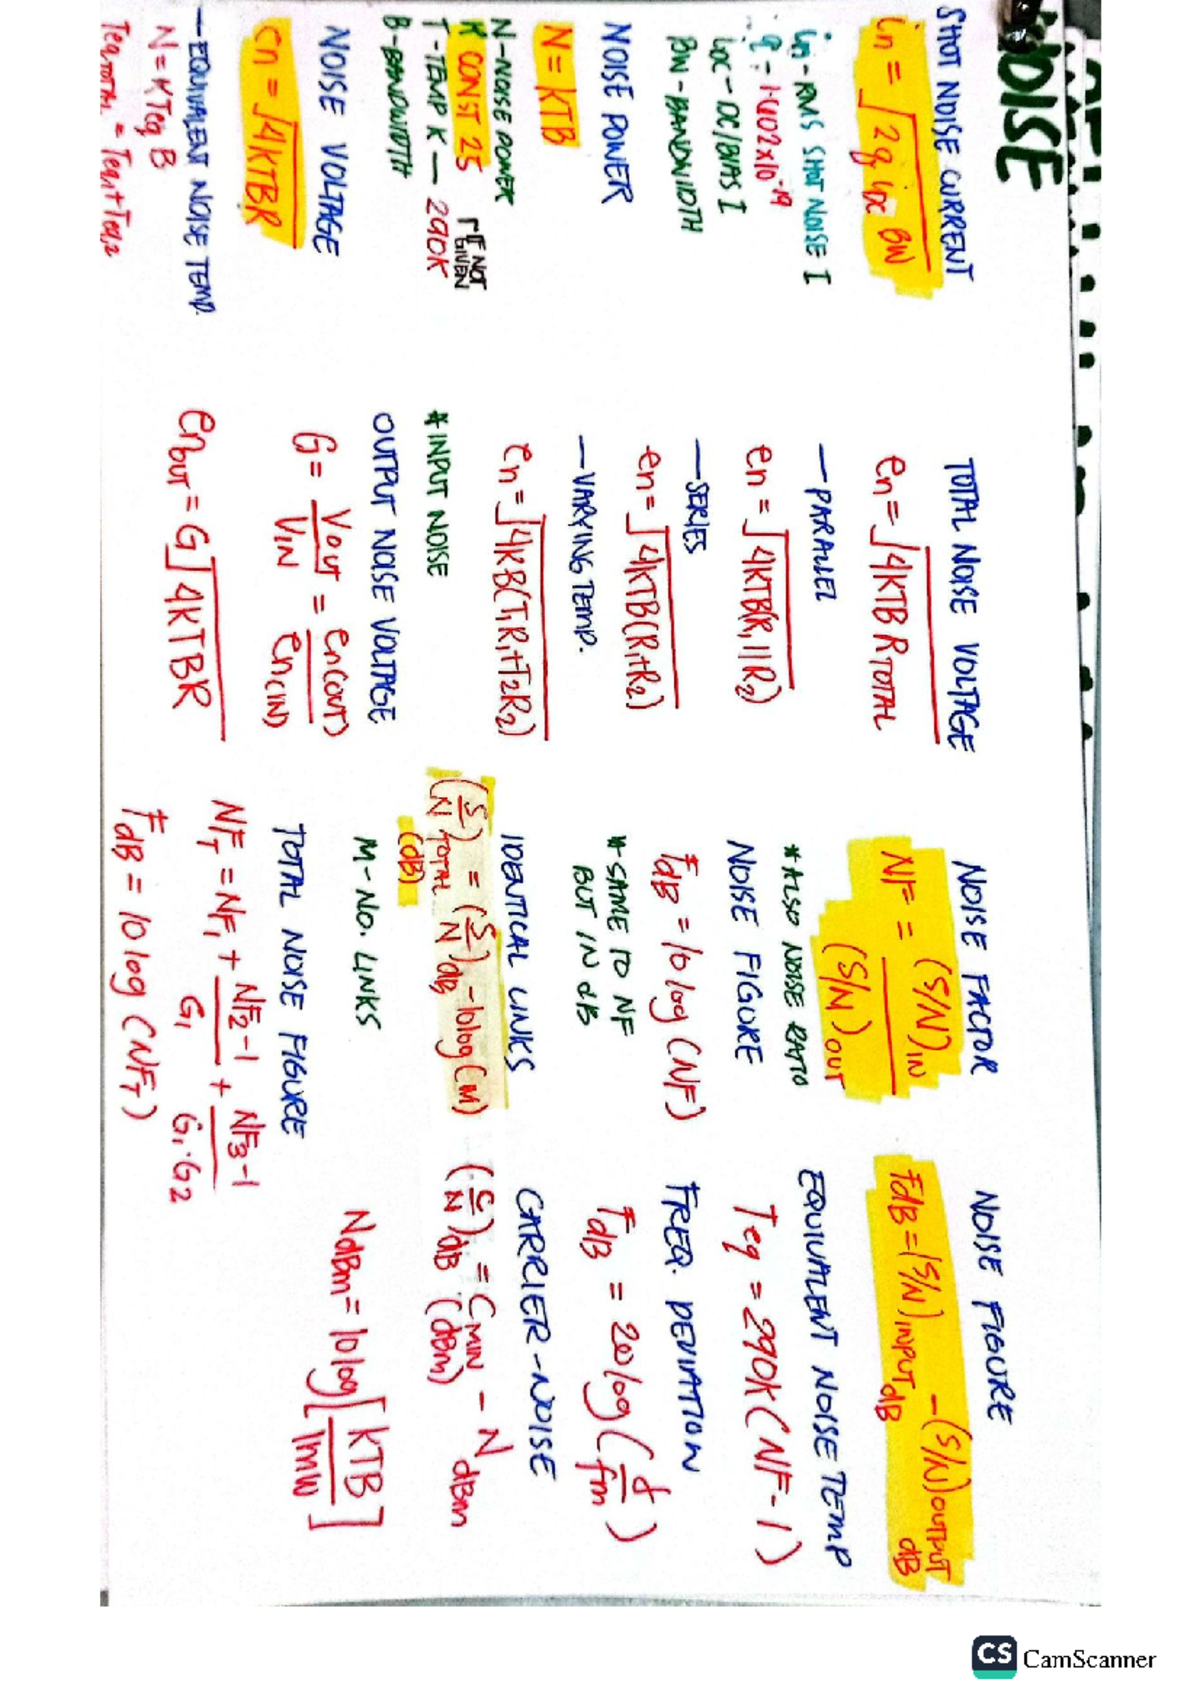 NOISE
SHOT NOISE CURRENT
in = √2q IDC BW
in - RMS SHOT NOISE I
q - 1.602x10⁻¹⁹
IDC - DC/BIAS I
BW - BANDWIDTH
NOISE POWER
N = KTB
N - NOISE POWER
K CONST 25
T - TEMP K — 290K IF NOT GIVEN
B - BANDWIDTH
NOISE VOLTAGE
en = √4KTBR
— EQUIVALENT NOISE TEMP.
N = KTeq B
Teq TOTAL = Teq,1 + Teq,2
TOTAL NOISE VOLTAGE
en = √4KTB RTOTAL
— PARALLEL
en = √4KTB(R1 || R2)
— SERIES
en = √4KTB(R1+R2)
— VARYING TEMP.
en = √4KB(T1R1+T2R2)
* INPUT NOISE
OUTPUT NOISE VOLTAGE
G = VOUT / VIN = en(OUT) / en(IN)
enOUT = G√4KTBR
NOISE FACTOR
NF = (S/N)IN / (S/N)OUT
* ALSO NOISE RATIO
NOISE FIGURE
FdB = 10 log (NF)
* SAME TO NF
BUT IN dB
IDENTICAL LINKS
(S/N)TOTAL (dB) = (S/N)dB - 10log(M)
M - NO. LINKS
TOTAL NOISE FIGURE
NFT = NF1 + NF2-1 / G1 + NF3-1 / G1·G2
FdB = 10 log (NFT)
NOISE FIGURE
FdB = (S/N)INPUT dB - (S/N)OUTPUT dB
EQUIVALENT NOISE TEMP
Teq = 290K (NF-1)
FREQ. DEVIATION
FdB = 20 log (d / fm)
CARRIER-NOISE
(C/N)dB = CMIN (dBm) - NdBm
NdBm = 10log [KTB / 1mW]
CS CamScanner